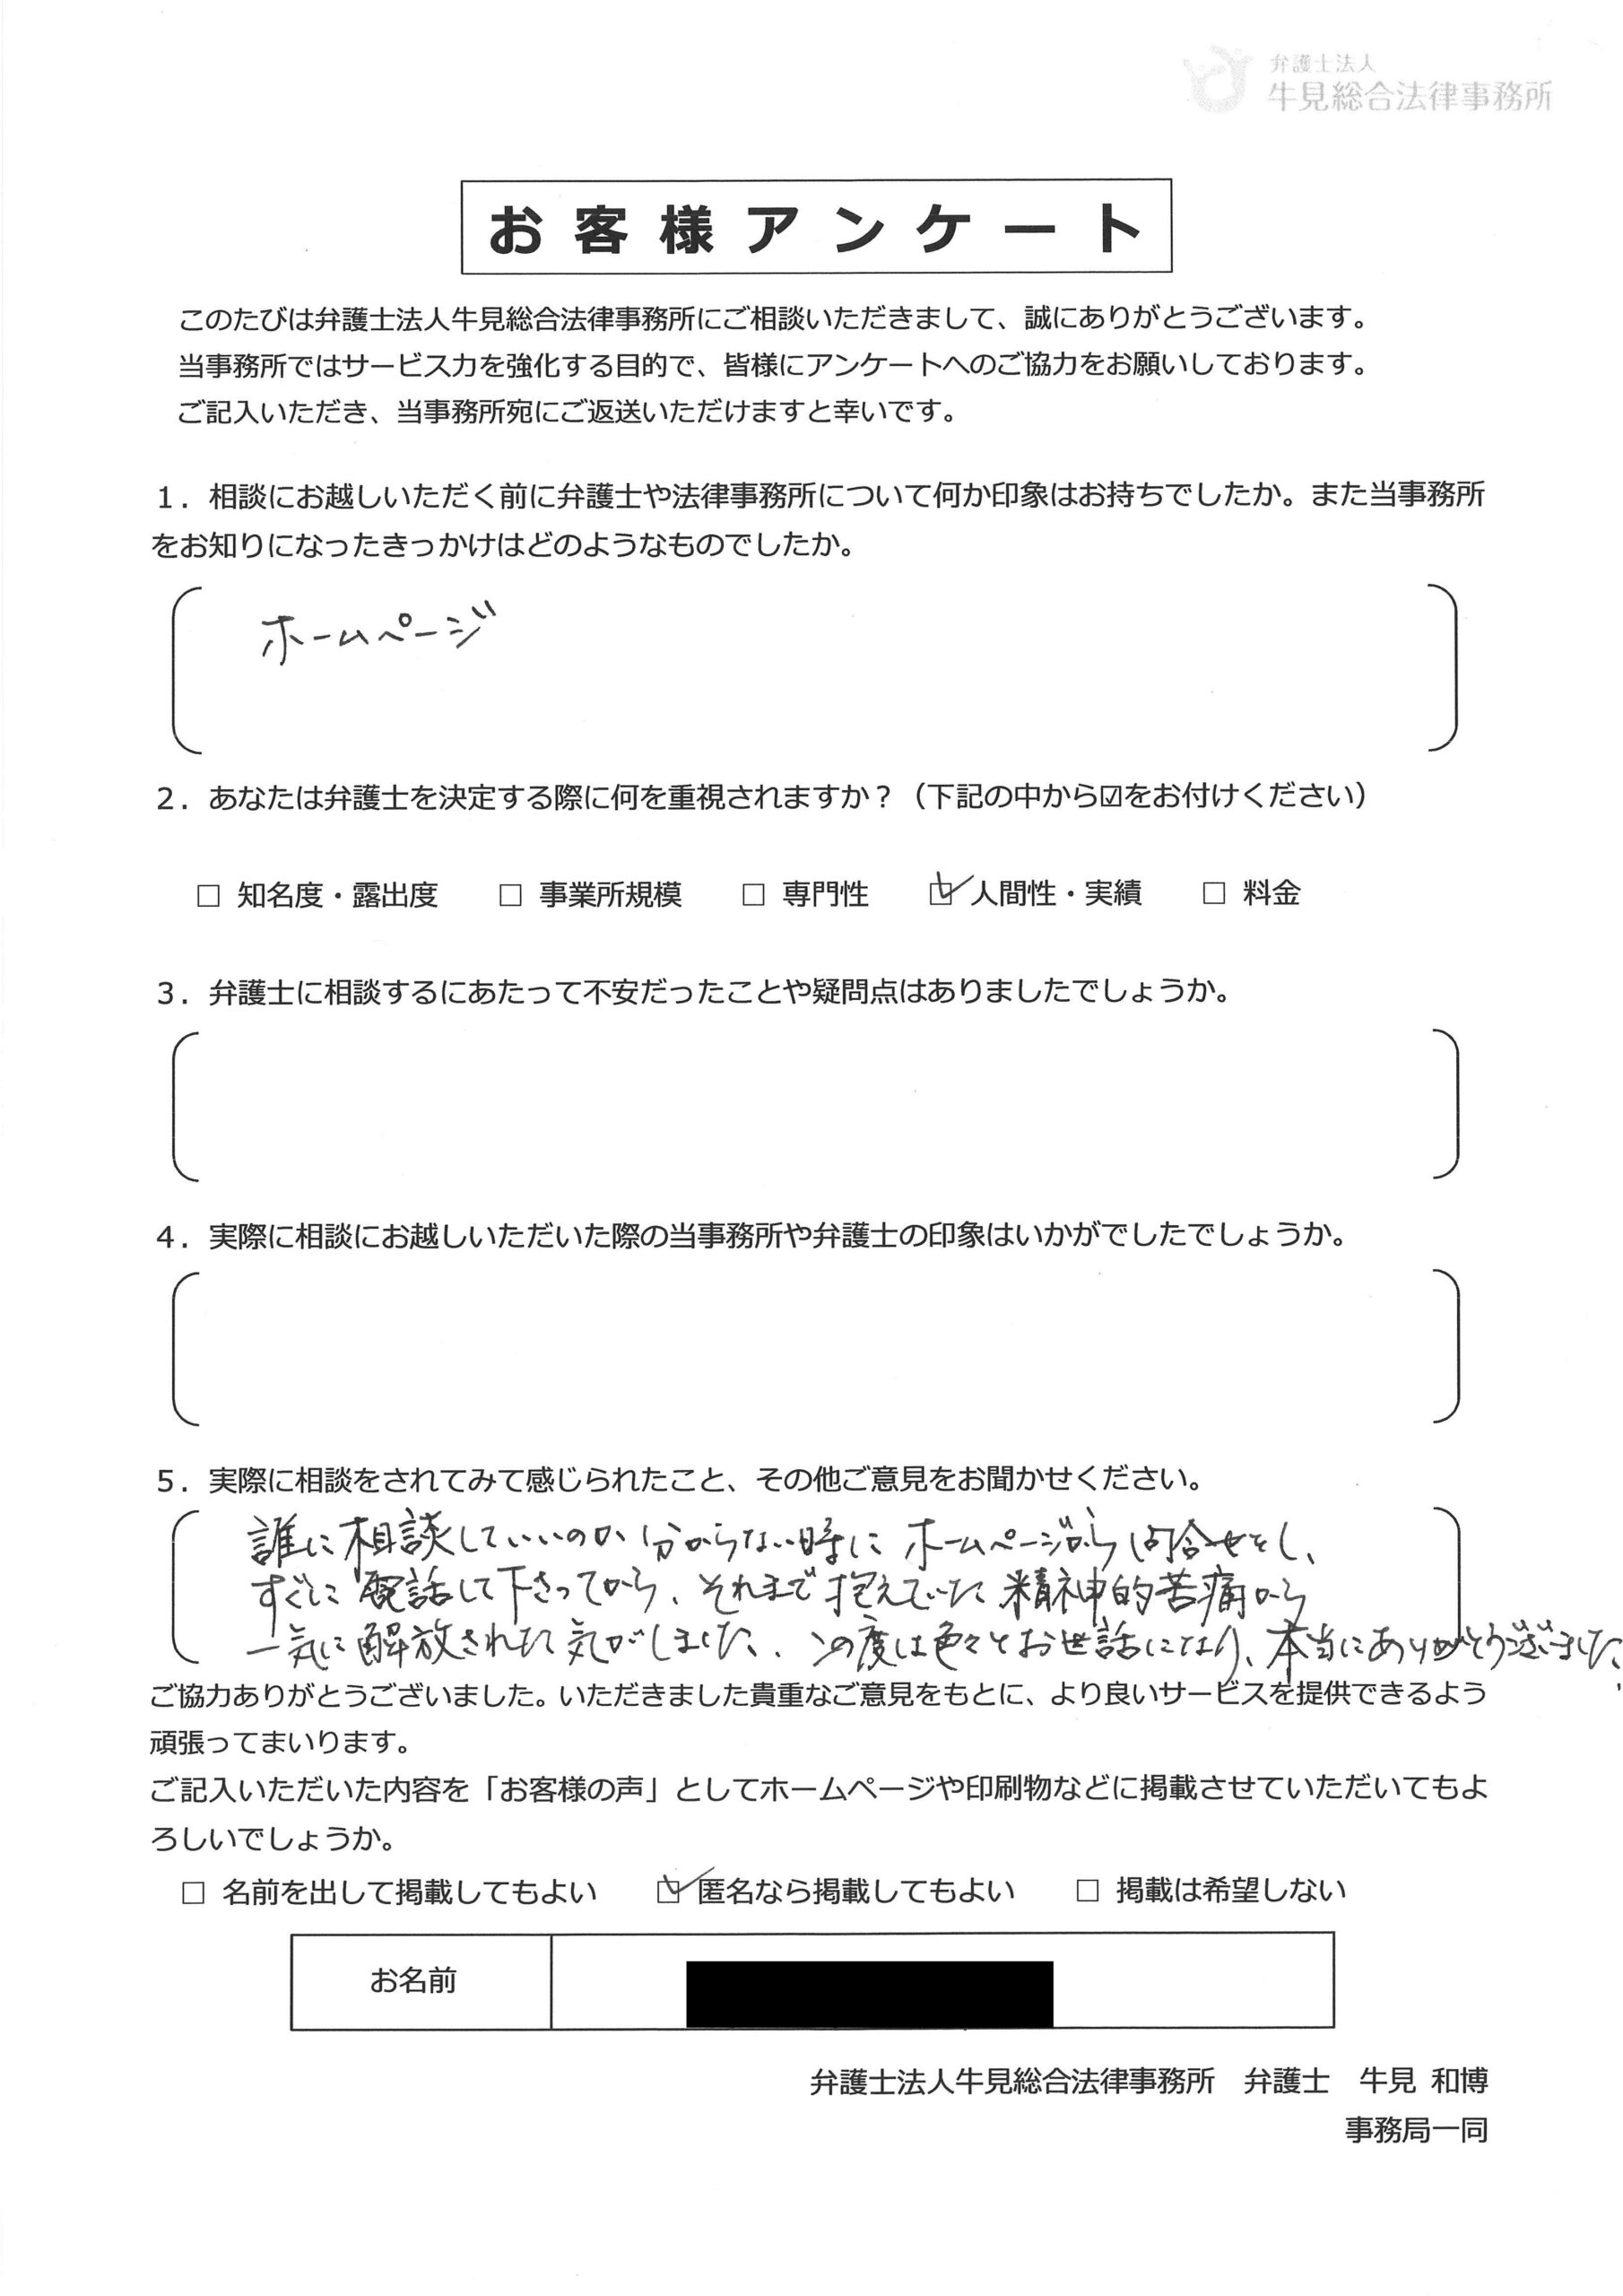 弁護士法人
牛見総合法律事務所
お客様アンケート
このたびは弁護士法人牛見総合法律事務所にご相談いただきまして、誠にありがとうございます。
当事務所ではサービス力を強化する目的で、皆様にアンケートへのご協力をお願いしております。
ご記入いただき、当事務所宛にご返送いただけますと幸いです。
１．相談にお越しいただく前に弁護士や法律事務所について何か印象はお持ちでしたか。また当事務所
をお知りになったきっかけはどのようなものでしたか。
ホームページ
２．あなたは弁護士を決定する際に何を重視されますか？（下記の中から☑をお付けください）
□ 知名度・露出度 □ 事業所規模 □ 専門性 ☑ 人間性・実績 □ 料金
３．弁護士に相談するにあたって不安だったことや疑問点はありましたでしょうか。
４．実際に相談にお越しいただいた際の当事務所や弁護士の印象はいかがでしたでしょうか。
５．実際に相談をされてみて感じられたこと、その他ご意見をお聞かせください。
誰に相談していいのか分からない時にホームページから問合せをし、
すぐに電話して下さってから、それまで抱えていた精神的苦痛から
一気に解放された気がしました。この度は色々とお世話になり、本当にありがとうございました。
ご協力ありがとうございました。いただきました貴重なご意見をもとに、より良いサービスを提供できるよう
頑張ってまいります。
ご記入いただいた内容を「お客様の声」としてホームページや印刷物などに掲載させていただいてもよ
ろしいでしょうか。
□ 名前を出して掲載してもよい ☑ 匿名なら掲載してもよい □ 掲載は希望しない
お名前
弁護士法人牛見総合法律事務所　弁護士　牛見 和博
事務局一同